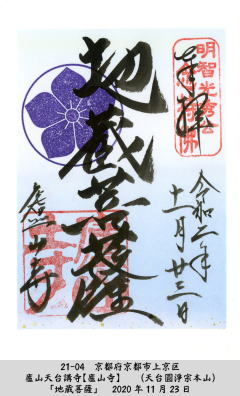 奉拝
明智光秀公
地蔵菩薩
令和二年
十一月廿三日
廬山寺
21-04 京都府京都市上京区
廬山天台講寺【廬山寺】 (天台圓浄宗本山)
「地蔵菩薩」 2020年11月23日